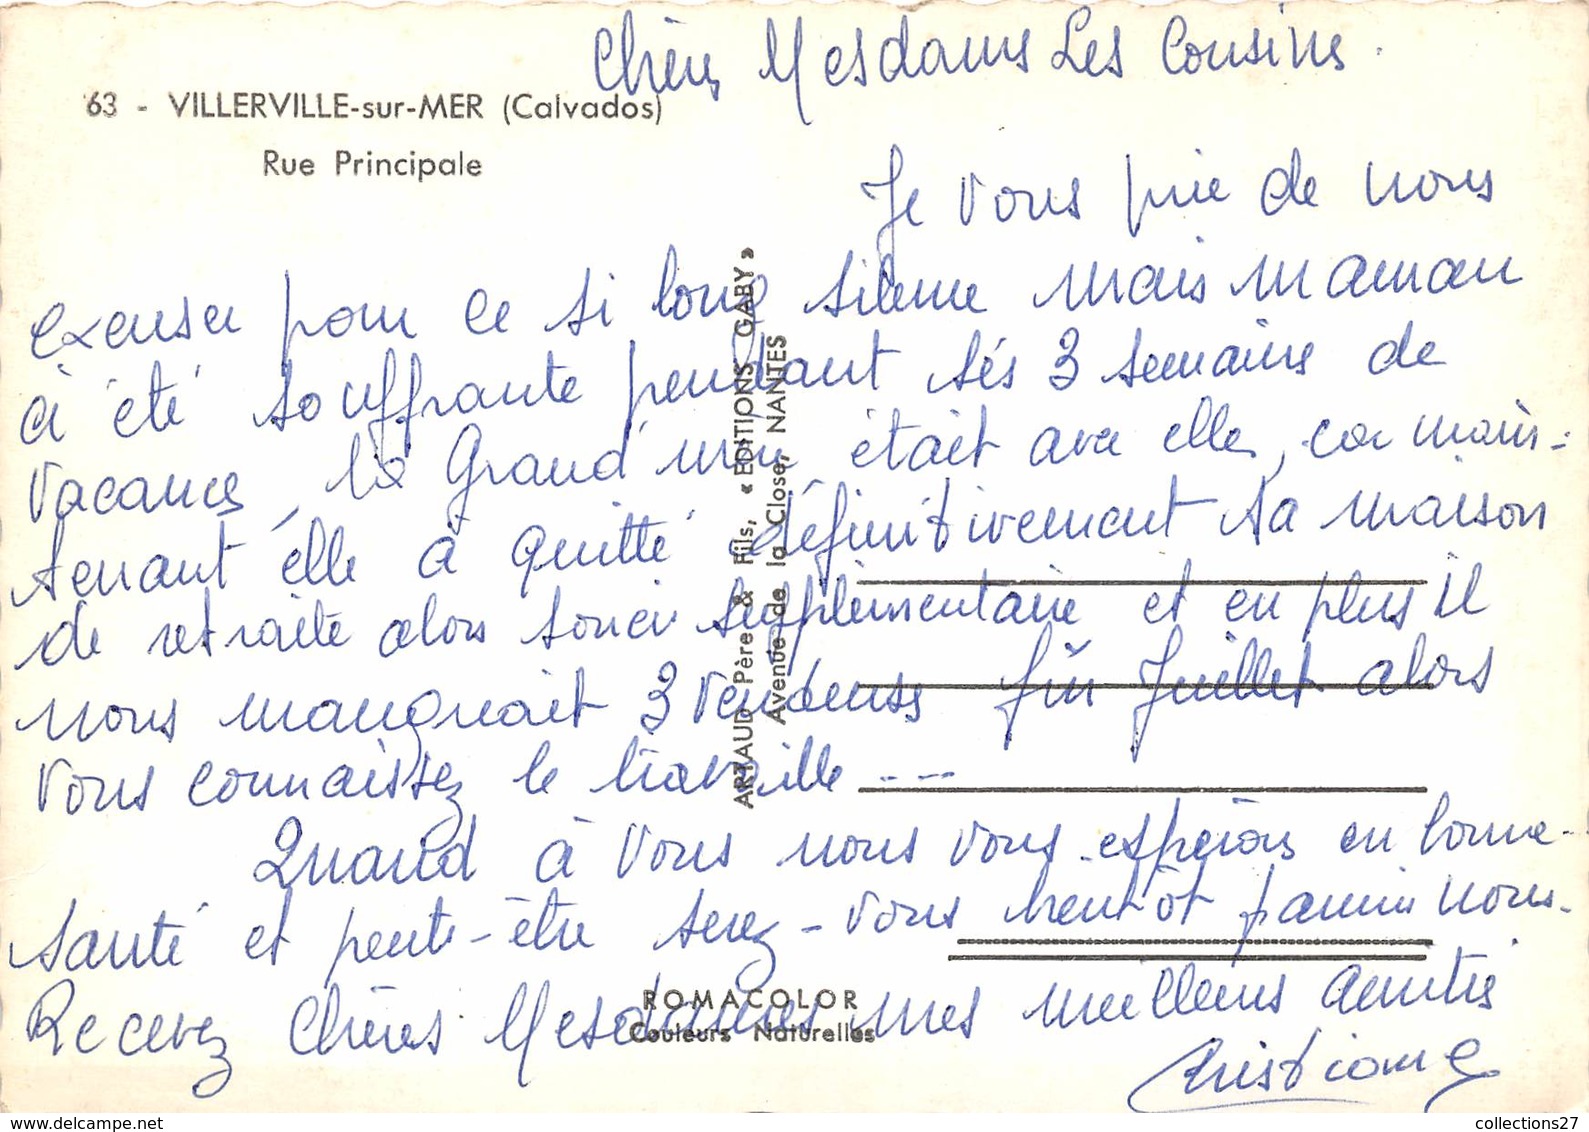 Chères Mesdames Les Cousines.
63 - VILLERVILLE-sur-MER (Calvados)
Rue Principale
Je vous prie de nous
excuser pour ce si long silence mais maman
à été souffrante pendant sés 3 semaines de
vacances, la Grand'mère était avec elle, car main-
tenant élle à quitté définitivement sa maison
de retraite alors souci supplémentaire et en plus il
nous manquait 3 vendeuses fin Juillet alors
vous connaissez le travaille ....
Quand à vous nous vous espérons en bonne-
santé et peute-être serez-vous bientôt parmis nous.
Recevez Chères Mesdames mes meilleurs amitiés
Christiane
ARTAUD Père & Fils, « EDITIONS GABY »
Avenue de la Close, NANTES
ROMACOLOR
Couleurs Naturelles
https://www.delcampe.net
collections27